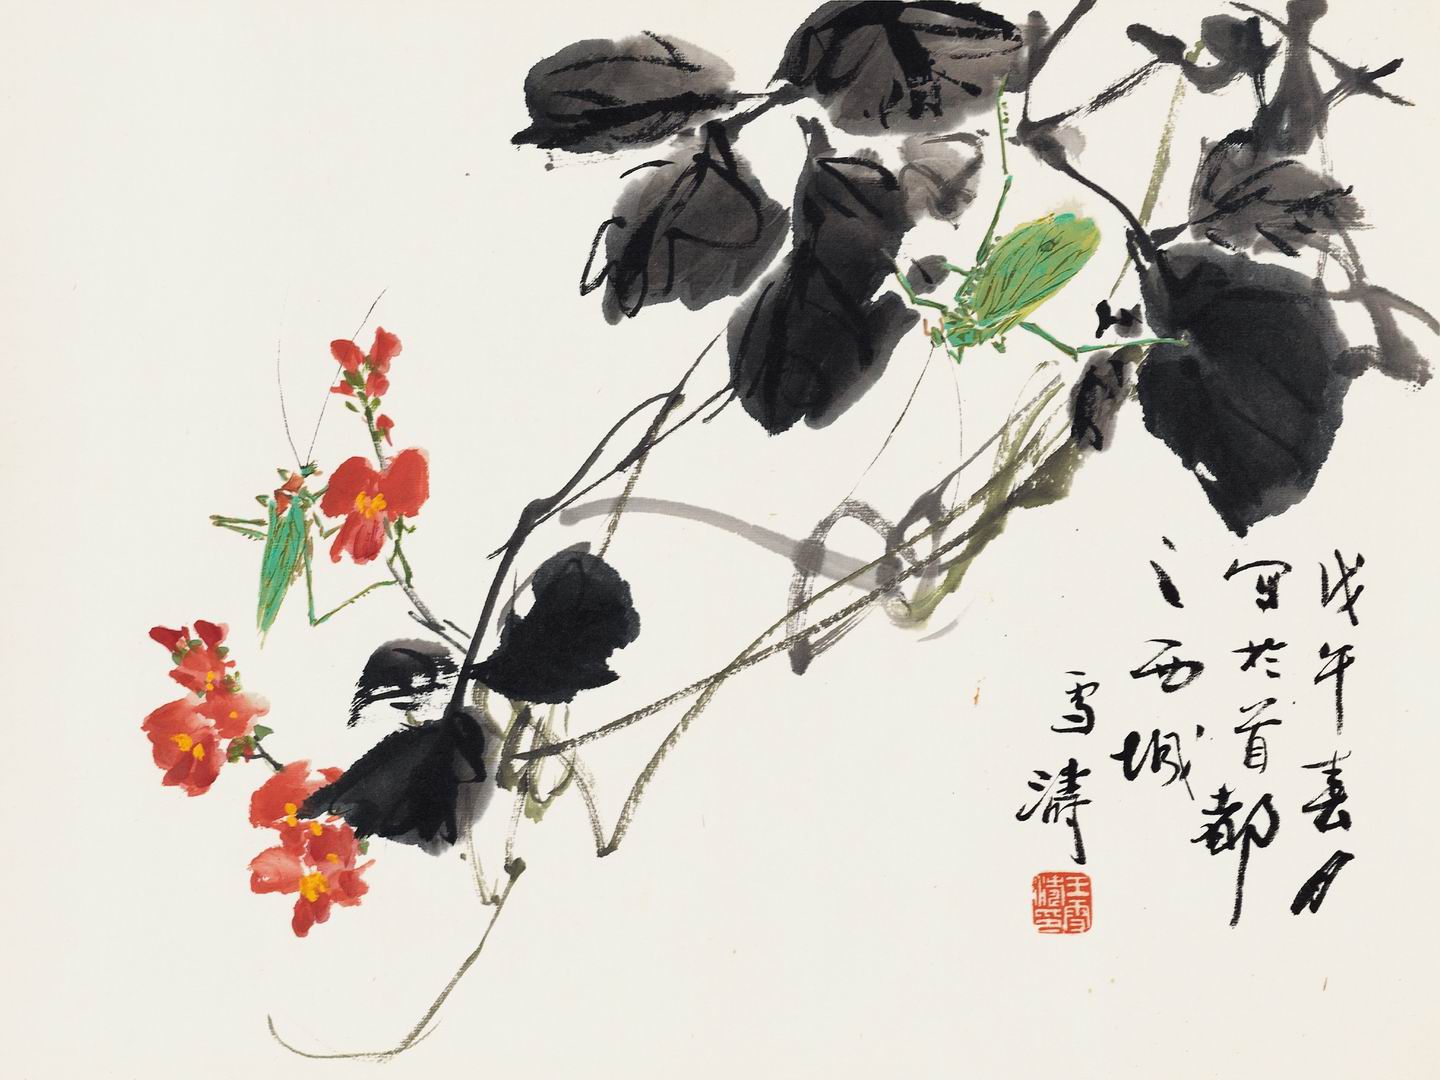 戊午春月
写於首都
之西城
雪涛
王雪涛印